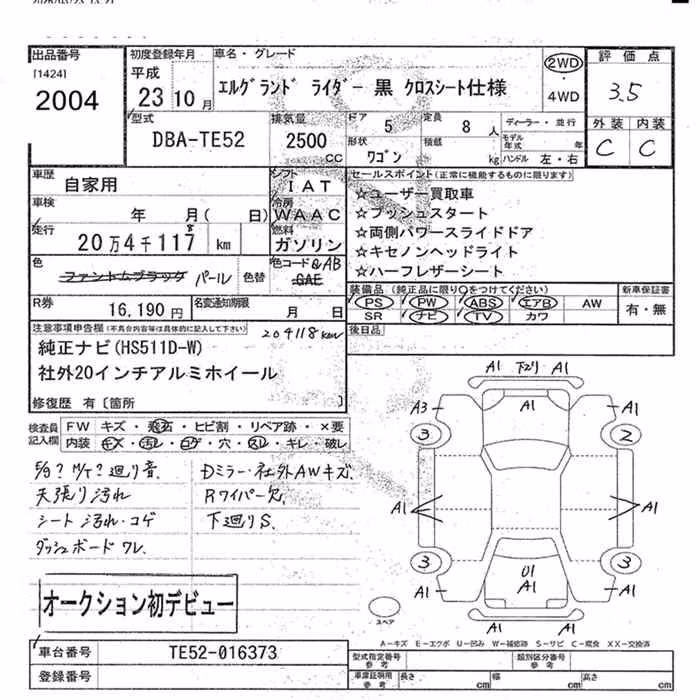 出品番号 初度登録年月 車名・グレード 評価点
[1424] 平成 ②WD
2004 23 10月 エルグランド ライダー 黒 クロスシート仕様 4WD 3.5
型式 排気量 ドア 定員 ディーラー・並行 外装 内装
DBA-TE52 2500 CC 5 8人 モデル年式 年 C C
形状 積載 ハンドル 左・右
ワゴン kg
車歴 シフト セールスポイント(正常に機能するものに限ります)
自家用 IAT ☆ユーザー買取車
車検 年 月( 日) 冷房 WAAC ☆プッシュスタート
走行 20万4千117 8 km 燃料 ガソリン ☆両側パワースライドドア
色 ファントムブラック パール 色替 色コード QAB ☆キセノンヘッドライト
GAE ☆ハーフレザーシート
R券 16,190円 名変通知期限 月 日 装備品(純正品に限り○をつけてください) 新車保証書
PS PW ABS エアB AW 有・無
SR ナビ TV カワ
注意事項申告欄(不具合内容等は具体的に記入して下さい) 204118km 後日品
純正ナビ(HS511D-W)
社外20インチアルミホイール
修復歴 有〔箇所 〕
検査員記入欄 FW キズ・飛石・ヒビ割・リペア跡・×要
内装 キズ・汚レ・コゲ・穴・スレ・キレ・破レ
M/T? 廻り音. Dミラー・社外AWキズ.
天張り汚れ Rワイパー欠.
シート汚れ・コゲ 下廻りS.
ダッシュボードワレ.
A1 下廻り A1
A3 A1 A1
3 2
A1 A1
3 3
U1
A1 A1 A1
A1 A1
スペア
オークション初デビュー
A-キズ E-エクボ U-凹み W-補修跡 S-サビ C-腐食 XX-交換済
車台番号 TE52-016373 型式指定番号 参考 類別区分番号 参考
登録番号 車庫証明用 参考 長さ cm 幅 cm 高さ cm